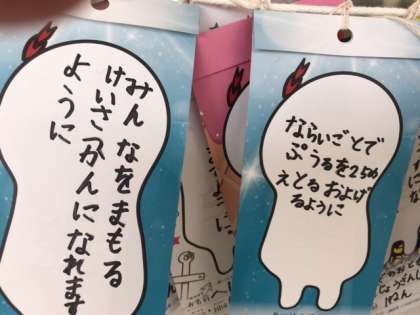 みんなをまもる
けいさつかんになれます
ように
ならいごとで
ぷうるを25め
えとるおよげ
るように